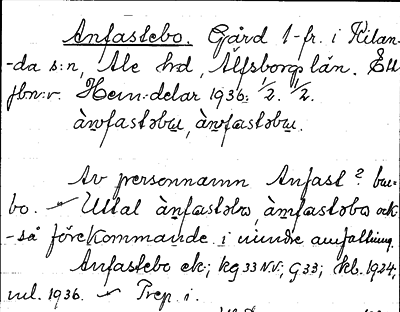 Anfastebo. Gård 1-fr. i Kilan-
-da s:n, Ale hd, Älfsborgs län. Ett
jbn:r. Hem:delar 1936: 1/2. 1/2.
àn̰fastəbɯ, àm̰fastəbɯ.
Av personnamn Anfast? bu-
bo. Uttal àn̰fastəbɷ, àm̰fastəbɷ ock-
-så förekommande i mindre omfattning.
Anfastebo ek; kg 33 N.V; G33; kb. 1924;
ml. 1936. Trep. i.